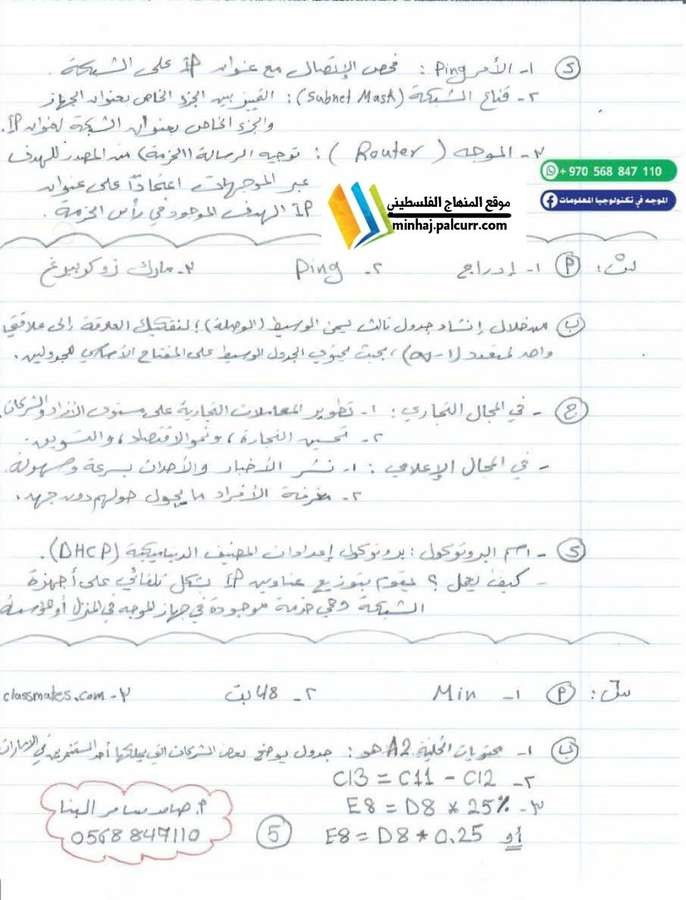 د) ١- الأمر Ping : فحص الإتصال مع عنوان IP على الشبكة.
٢- قناع الشبكة (Subnet Mask) : التمييز بين الجزء الخاص بعنوان الجهاز
والجزء الخاص بعنوان الشبكة لعنوان IP.
٣- الموجه (Router) : توجيه الرسالة (الحزمة) من المصدر للهدف
عبر الموجهات اعتمادًا على عنوان
IP الهدف الموجود في رأس الحزمة.
+ 970 568 847 110
الموجه في تكنولوجيا المعلومات
موقع المنهاج الفلسطيني
minhaj.palcurr.com
P) ١- إدراج ٢- Ping ٣- مارك زوكوبيرغ
ب) من خلال إنشاء جدول ثالث يسمى الوسيط (الوصلة) لتفكيك العلاقة إلى علاقتي
واحد لمتعدد (١-∞)، بحيث يحتوي الجدول الوسيط على المفتاح الأساسي للجدولين.
ج) - في المجال التجاري : ١- تطوير المعاملات التجارية على مستوى الأفراد والشركات
٢- تحسين التجارة، ونمو الاقتصاد، والتسويق.
- في المجال الإعلامي : ١- نشر الأخبار والأحداث بسرعة وسهولة.
٢- معرفة الأفراد ما يجول حولهم دون جهد.
د) - اسم البروتوكول : بروتوكول إعدادات المضيف الديناميكية (DHCP).
- كيف يعمل ؟ يقوم بتوزيع عناوين IP بشكل تلقائي على أجهزة
الشبكة وهي خدمة موجودة في جهاز الموجه في المنزل أو المؤسسة
P) ١- Min ٢- 48 بت ٣- classmates.com
ب) ١- محتويات الخلية A2 هو : جدول يوضح بعض الشركات التي يملكها أحد المستثمرين في الإمارات
٢- C13 = C11 - C12
٣- E8 = D8 * 25%
أو E8 = D8 * 0.25
أ. حامد سامر البنا
0568 847110
5